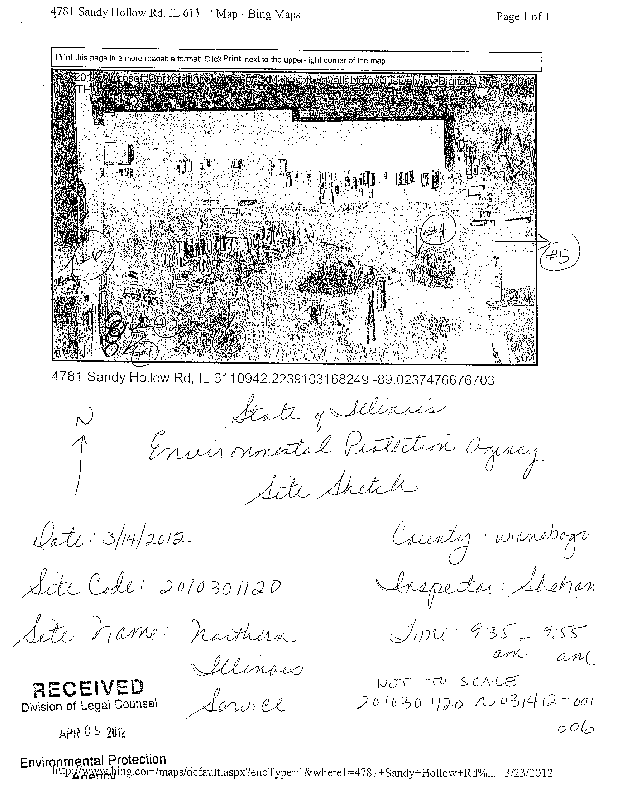 4781 Sandy Hollow Rd, IL 613 Map - Bing Maps
Page 1 of 1
Print this page in a more readable format: Click Print next to the upper-right corner of the map.
#4
#5
4781 Sandy Hollow Rd, IL 6110942.2239103168249 -89.0237476676703
N
State of Illinois
Environmental Protection Agency
Site Sketch
Date: 3/14/2012
County: Winnebago
Site Code: 2010301120
Inspector: Shehan
Site Name: Northern Illinois Service
Time: 9:35 - 9:55
am am
NOT TO SCALE
2010301120 ~ 031412-001
006
RECEIVED
Division of Legal Counsel
APR 05 2012
Environmental Protection
3/23/2012